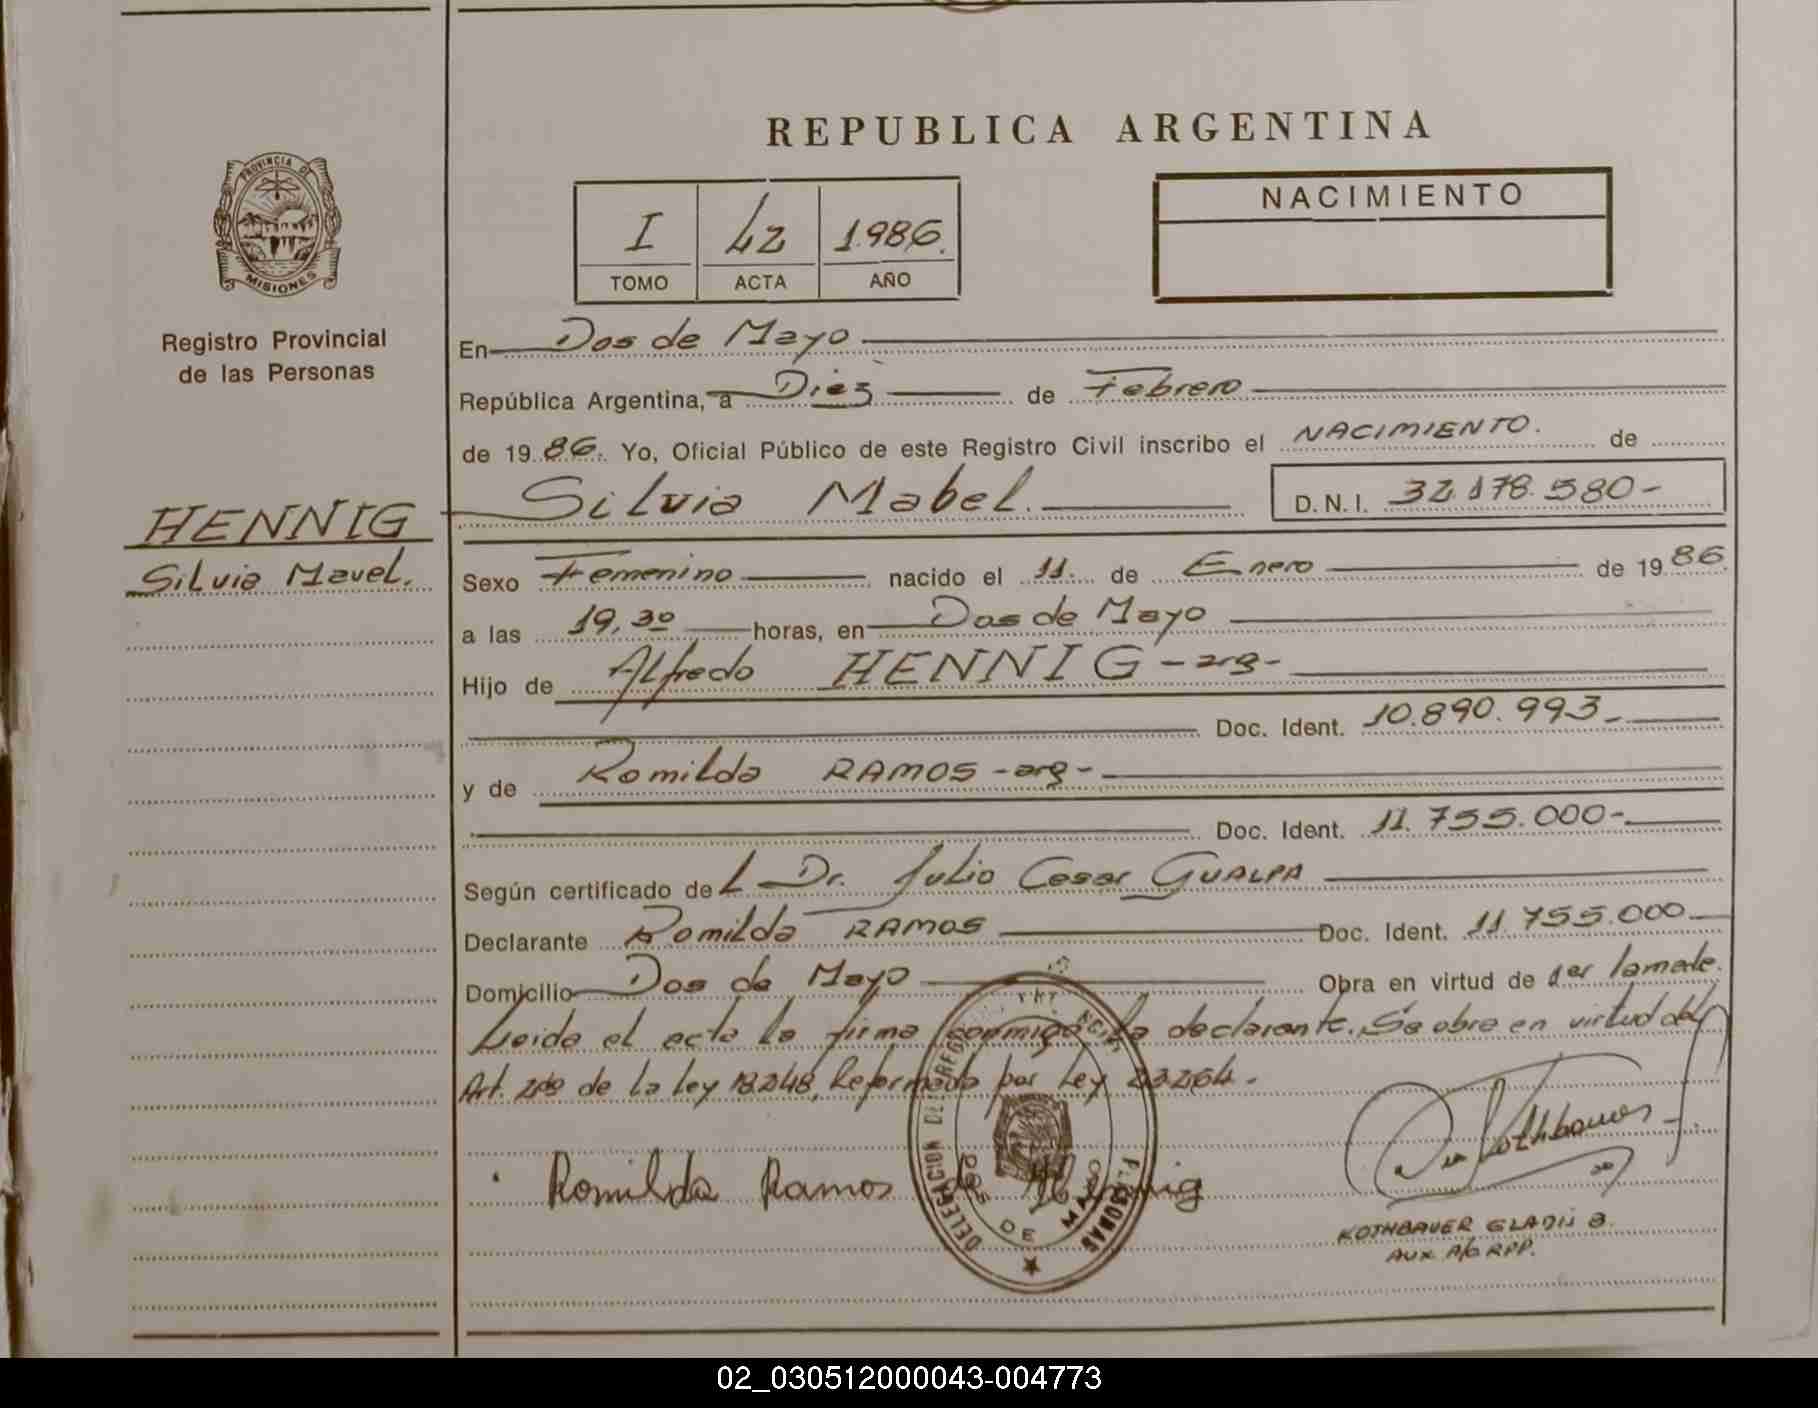 REPUBLICA ARGENTINA
PROVINCIA DE
MISIONES
Registro Provincial
de las Personas
I 42 1986.
TOMO ACTA AÑO
NACIMIENTO
En Dos de Mayo
República Argentina, a Diez de Febrero
de 1986. Yo, Oficial Público de este Registro Civil inscribo el NACIMIENTO. de
Silvia Mabel. D.N.I. 32.178.580-
HENNIG
Silvia Mavel.
Sexo Femenino nacido el 11. de Enero de 1986.
a las 19,30 horas, en Dos de Mayo
Hijo de Alfredo HENNIG -arg-
Doc. Ident. 10.890.993-
y de Romilda RAMOS -arg-
Doc. Ident. 11.755.000-
Según certificado del Dr. Julio Cesar GUALPA
Declarante Romilda RAMOS Doc. Ident. 11.755.000
Domicilio Dos de Mayo Obra en virtud de
Leida el acta la firma conmigo la declarante. Se obra en virtud del
Art. 2do de la ley 18.248, Reformada por Ley 23.264.
DELEGACION PERSONAS
DOS DE MAYO
Romilda Ramos de Hennig
KOTHBAUER GLADIS B.
AUX A/C RPP.
02_030512000043-004773